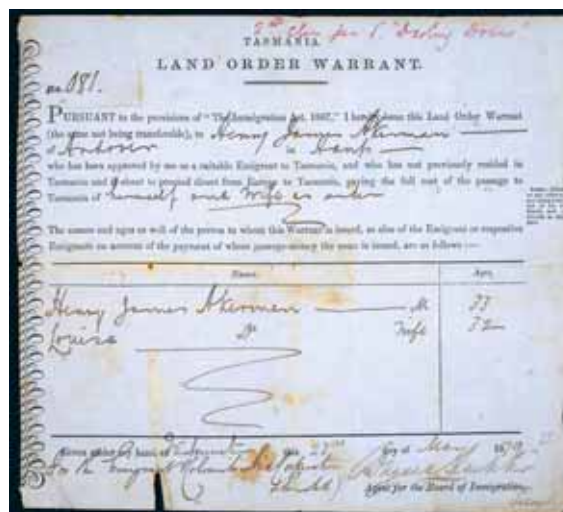 2nd Class per S. "Darling Downs"
TASMANIA.
LAND ORDER WARRANT.
No. 081.
PURSUANT to the provisions of "The Immigration Act, 1867," I hereby issue this Land Order Warrant
(the same not being transferable), to Henry James Akerman
of Andover in Hants
who has been approved by me as a suitable Emigrant to Tasmania, and who has not previously resided in
Tasmania and is about to proceed direct from Europe to Tasmania, paying the full cost of the passage to
Tasmania of himself and Wife as under
The names and ages as well of the person to whom this Warrant is issued, as also of the Emigrant or respective
Emigrants on account of the payment of whose passage-money the same is issued, are as follows:—
Name. Age.
Henry James Akerman M 33
Louisa Do Wife 32
Given under my hand, this day of May
For the Emigrant
Agent for the Board of Immigration.